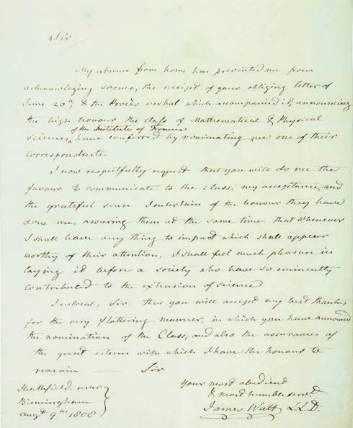 Sir
My absence from home has prevented me from
acknowledging sooner, the receipt of your obliging letter of
June 20th & the Procès verbal which accompanied it, announcing
the high honour the class of Mathematical & Physical
of the Institute of France
Science, have conferred by nominating me one of their
correspondents.
I now respectfully request that you will do me the
favour to communicate to the class, my acceptance, and
the grateful sense I entertain of the honour they have
done me, assuring them at the same time that whenever
I shall have any thing to impart which shall appear
worthy of their attention, I shall feel much pleasure in
laying it before a society who have so eminently
contributed to the extension of science
I intreat, Sir, that you will accept my best thanks
for the very flattering manner, in which you have announced
the nomination of the Class, and also the assurances of
the great esteem with which I have the honour to
remain Sir
Your most obedient
& most humble servt
James Watt LL.D.
Heathfield near
Birmingham
Augt 9th 1808